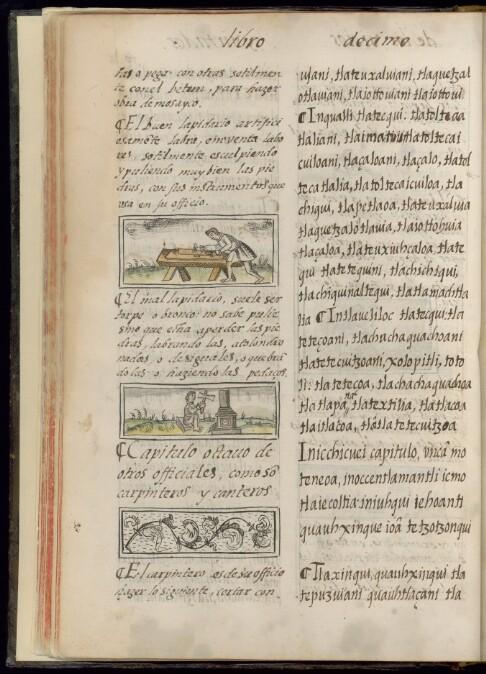 libro decimo
las o pega con otras sotilmen
te con el betun, para hazer
obra de mosayco.
¶ El buen lapidario artifici
osamẽte labra, e inventa labo
res, sotilmente, esculpiendo
y puliendo muy bien las pie
dras, con sus instrumentos que
usa en su officio.
¶ El mal lapidario, suele ser
torpe o bronco: no sabe pulir
sino que echa a perder las pie
dras, labrando las, atolondro
nadas o desiguales, o quebrã
dolas o haziendo las pedaços.
¶ Capitulo octavo de
otros officiales, como sõ
carpinteros y canteros
¶ El carpintero es de su officio
hazer lo siguiente, cortar con
uiani, tlateuxaluiani, tlaquetzal
otlauiani, tlaiottouiani tlaiottoui
¶ Inqualli tlatecqui. tlatolteca
tlaliani, tlaimatini tlatoltecai
cuiloani, tlaçaloani, tlaçalo, tlatol
tecatlalia, tlatoltecaicuiloa, tla
chiqui, tlapetlaoa, tlateuxaluia
tlaquetzalotlauia, tlaiottohuia
tlaçaloa, tlateuxiuhçaloa, tlate
qui tlatetequini, tlachichiqui,
tlachiquinaltequi, tlatlamachtla
lia ¶ Intlaueliloc tlatecqui tla
teteçoani, tlachachaquachoani
tlatetecuitzoani, xolopitli, toto
li: tlatetecoa, tlachachaquachoa
tlatlapana, tlatextilia, tlatlacoa
tlaitlacoa, tlatlatetecuitzoa
Inicchicuei capitulo, vncã mo
teneoa, inoccentlamantli icmo
tlaiecoltia iniuhqui iehoanti
quauhxinque ioã tetzotzonqui
¶ Tlaxinqui, quauhxinqui tla
tepuzuiani quauhtlaçani tla